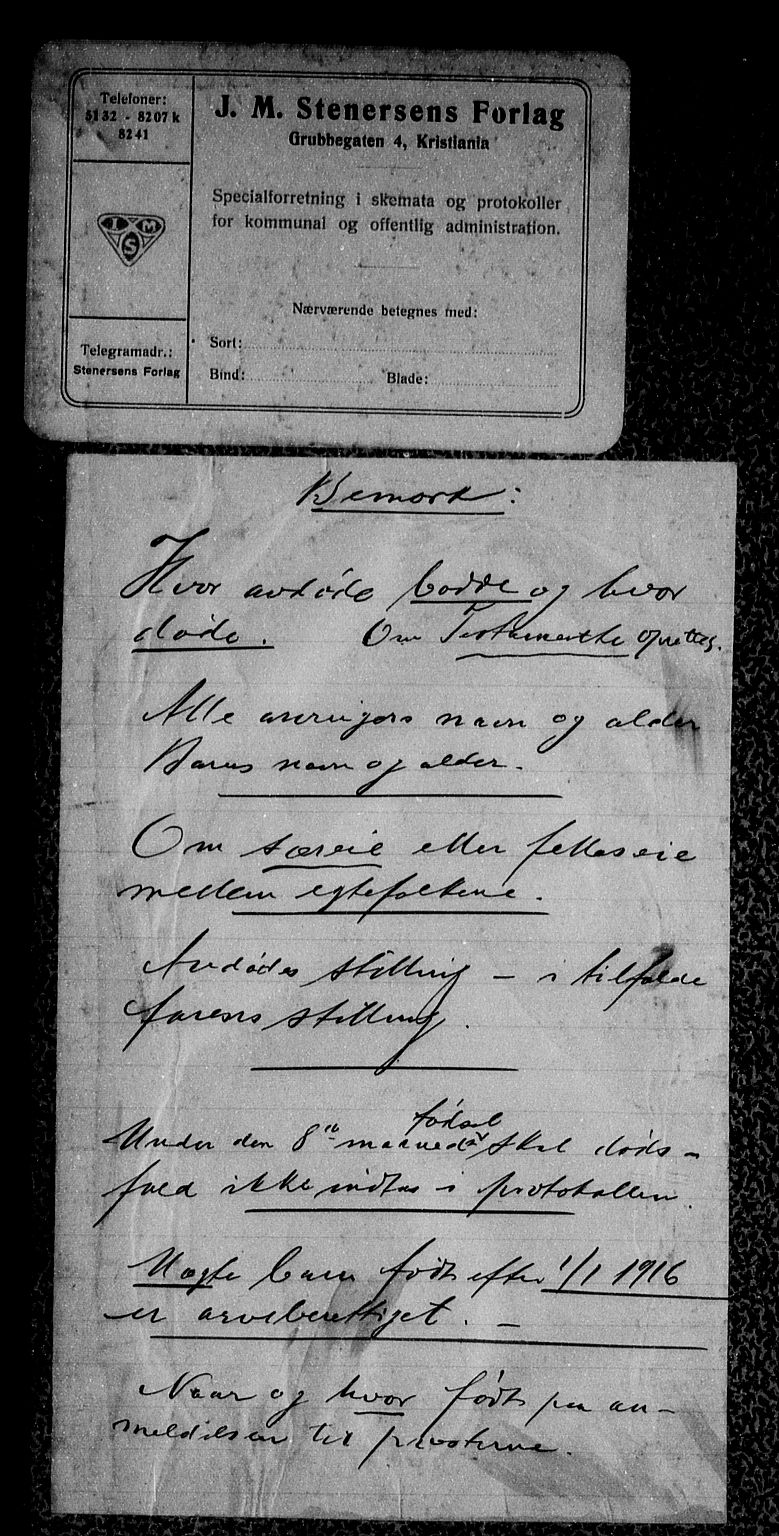 Telefoner:
5132 - 8207 k
8241
J. M. Stenersens Forlag
Grubbegaten 4, Kristiania
Specialforretning i skemata og protokoller
for kommunal og offentlig administration.
I M S
Nærværende betegnes med:
Telegramadr.:
Stenersens Forlag
Sort:
Bind: Blade:
Bemærk:
Hvor avdøde bodde og hvor
døde. Om Testamente oprettet.
Alle arvingers navn og alder
Barns navn og alder.
Om særeie eller felleseie
mellem egtefolkene.
Avdødes stilling – i tilfelde
farens stilling.
Under den 8de maaned fødsel skal døds-
fald ikke indtas i protokollen.
Uegte barn født efter 1/1 1916
er arveberettiget. –
Naar og hvor født paa an-
meldelsen til prosterne.